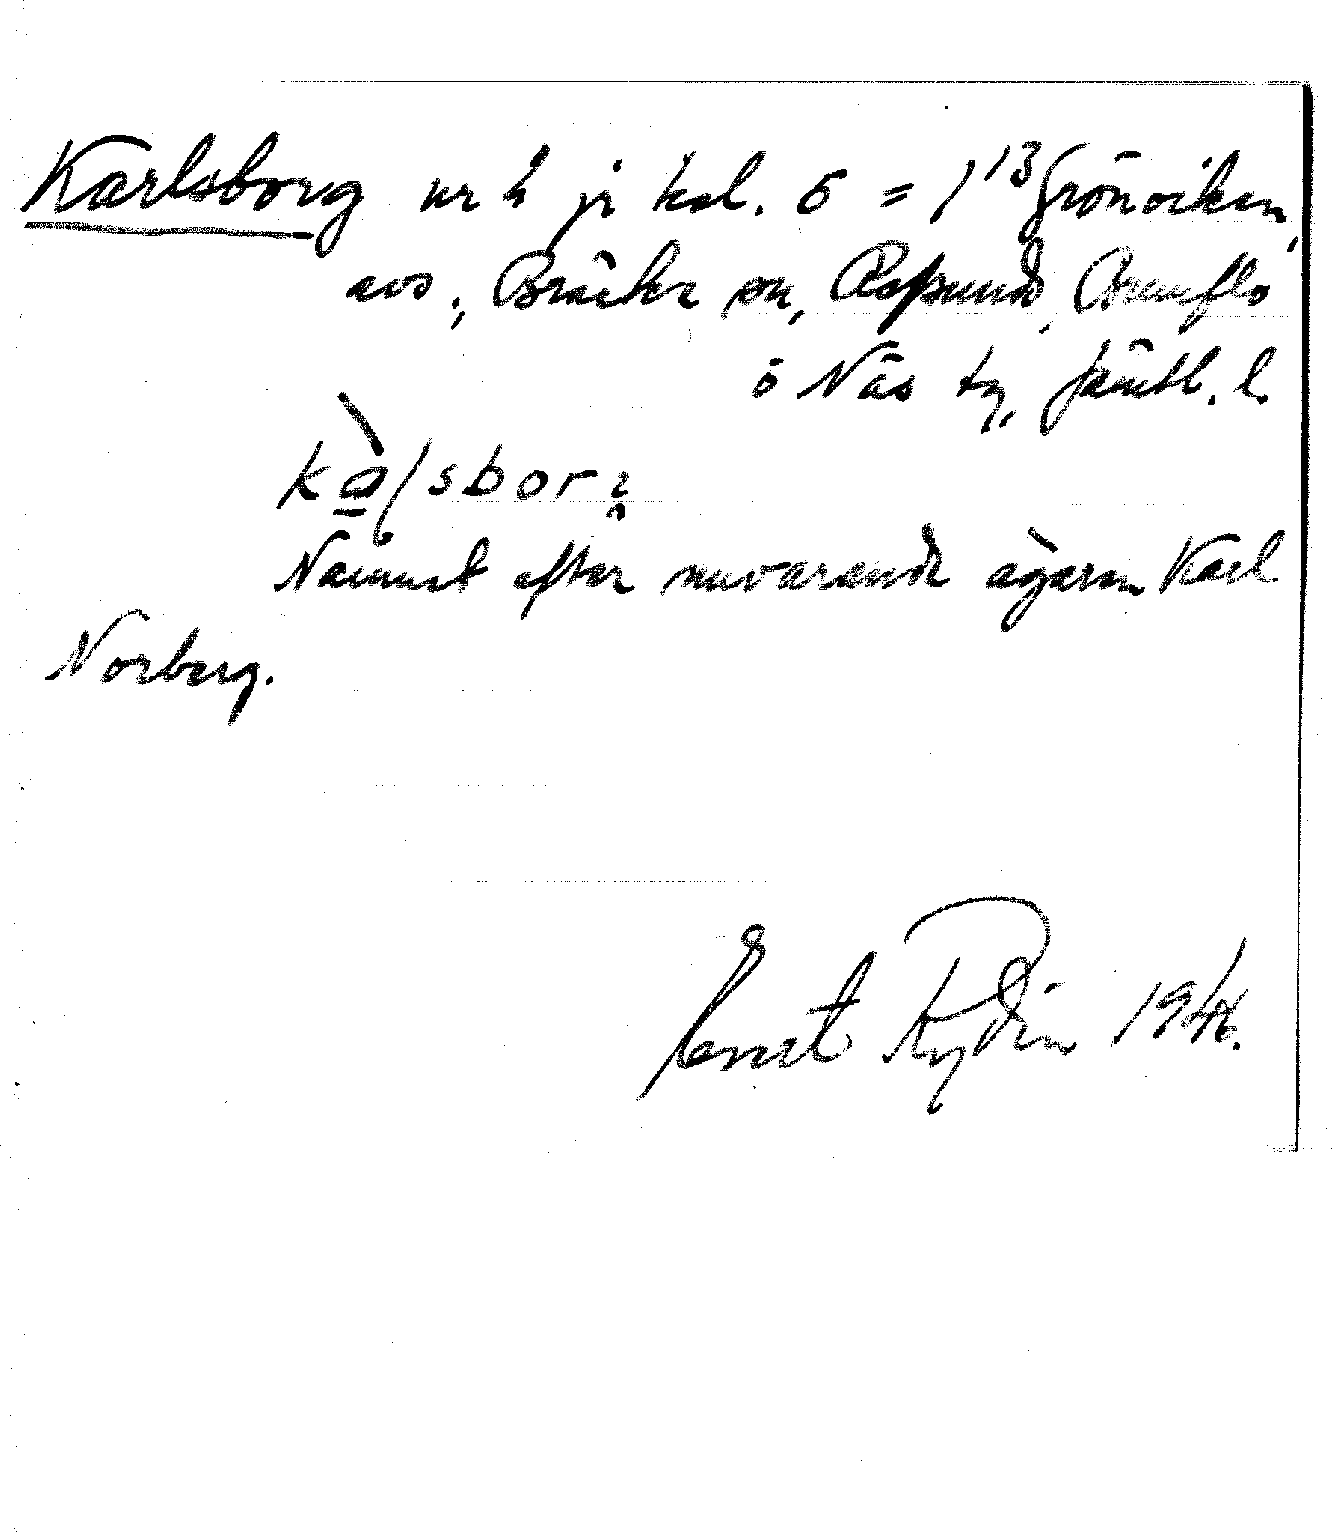 Karlsborg ur h jr kol. 5 = 1¹³ Grönviken,
avs., Bräcke sn, Refsunds, Brunflo
o Näs tg, Jämtl. l.
Nämnt efter nuvarande ägaren Karl
Norberg.
Ernst Rydin 1944.